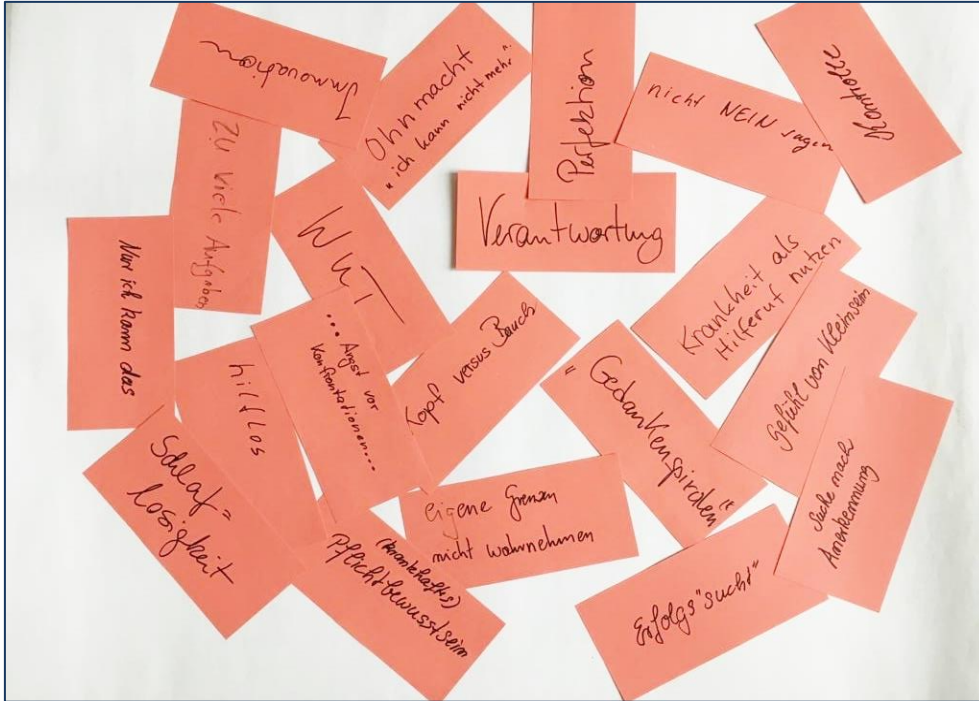 Innovation
Ohnmacht
"ich kann nicht mehr"
Perfektion
nicht NEIN sagen
Kontrolle
Zu viele Aufgaben
WUT
Verantwortung
Krankheit als
Hilferuf nutzen
Nur ich kann das
hilflos
... Angst vor
Konfrontationen...
Kopf versus Bauch
"Gedankenspiralen"
Gefühl von Kleinsein
Suche nach
Anerkennung
Schlaf=
losigkeit
(krankhaftes)
Pflichtbewusstsein
eigene Grenzen
nicht wahrnehmen
Erfolgs"sucht"